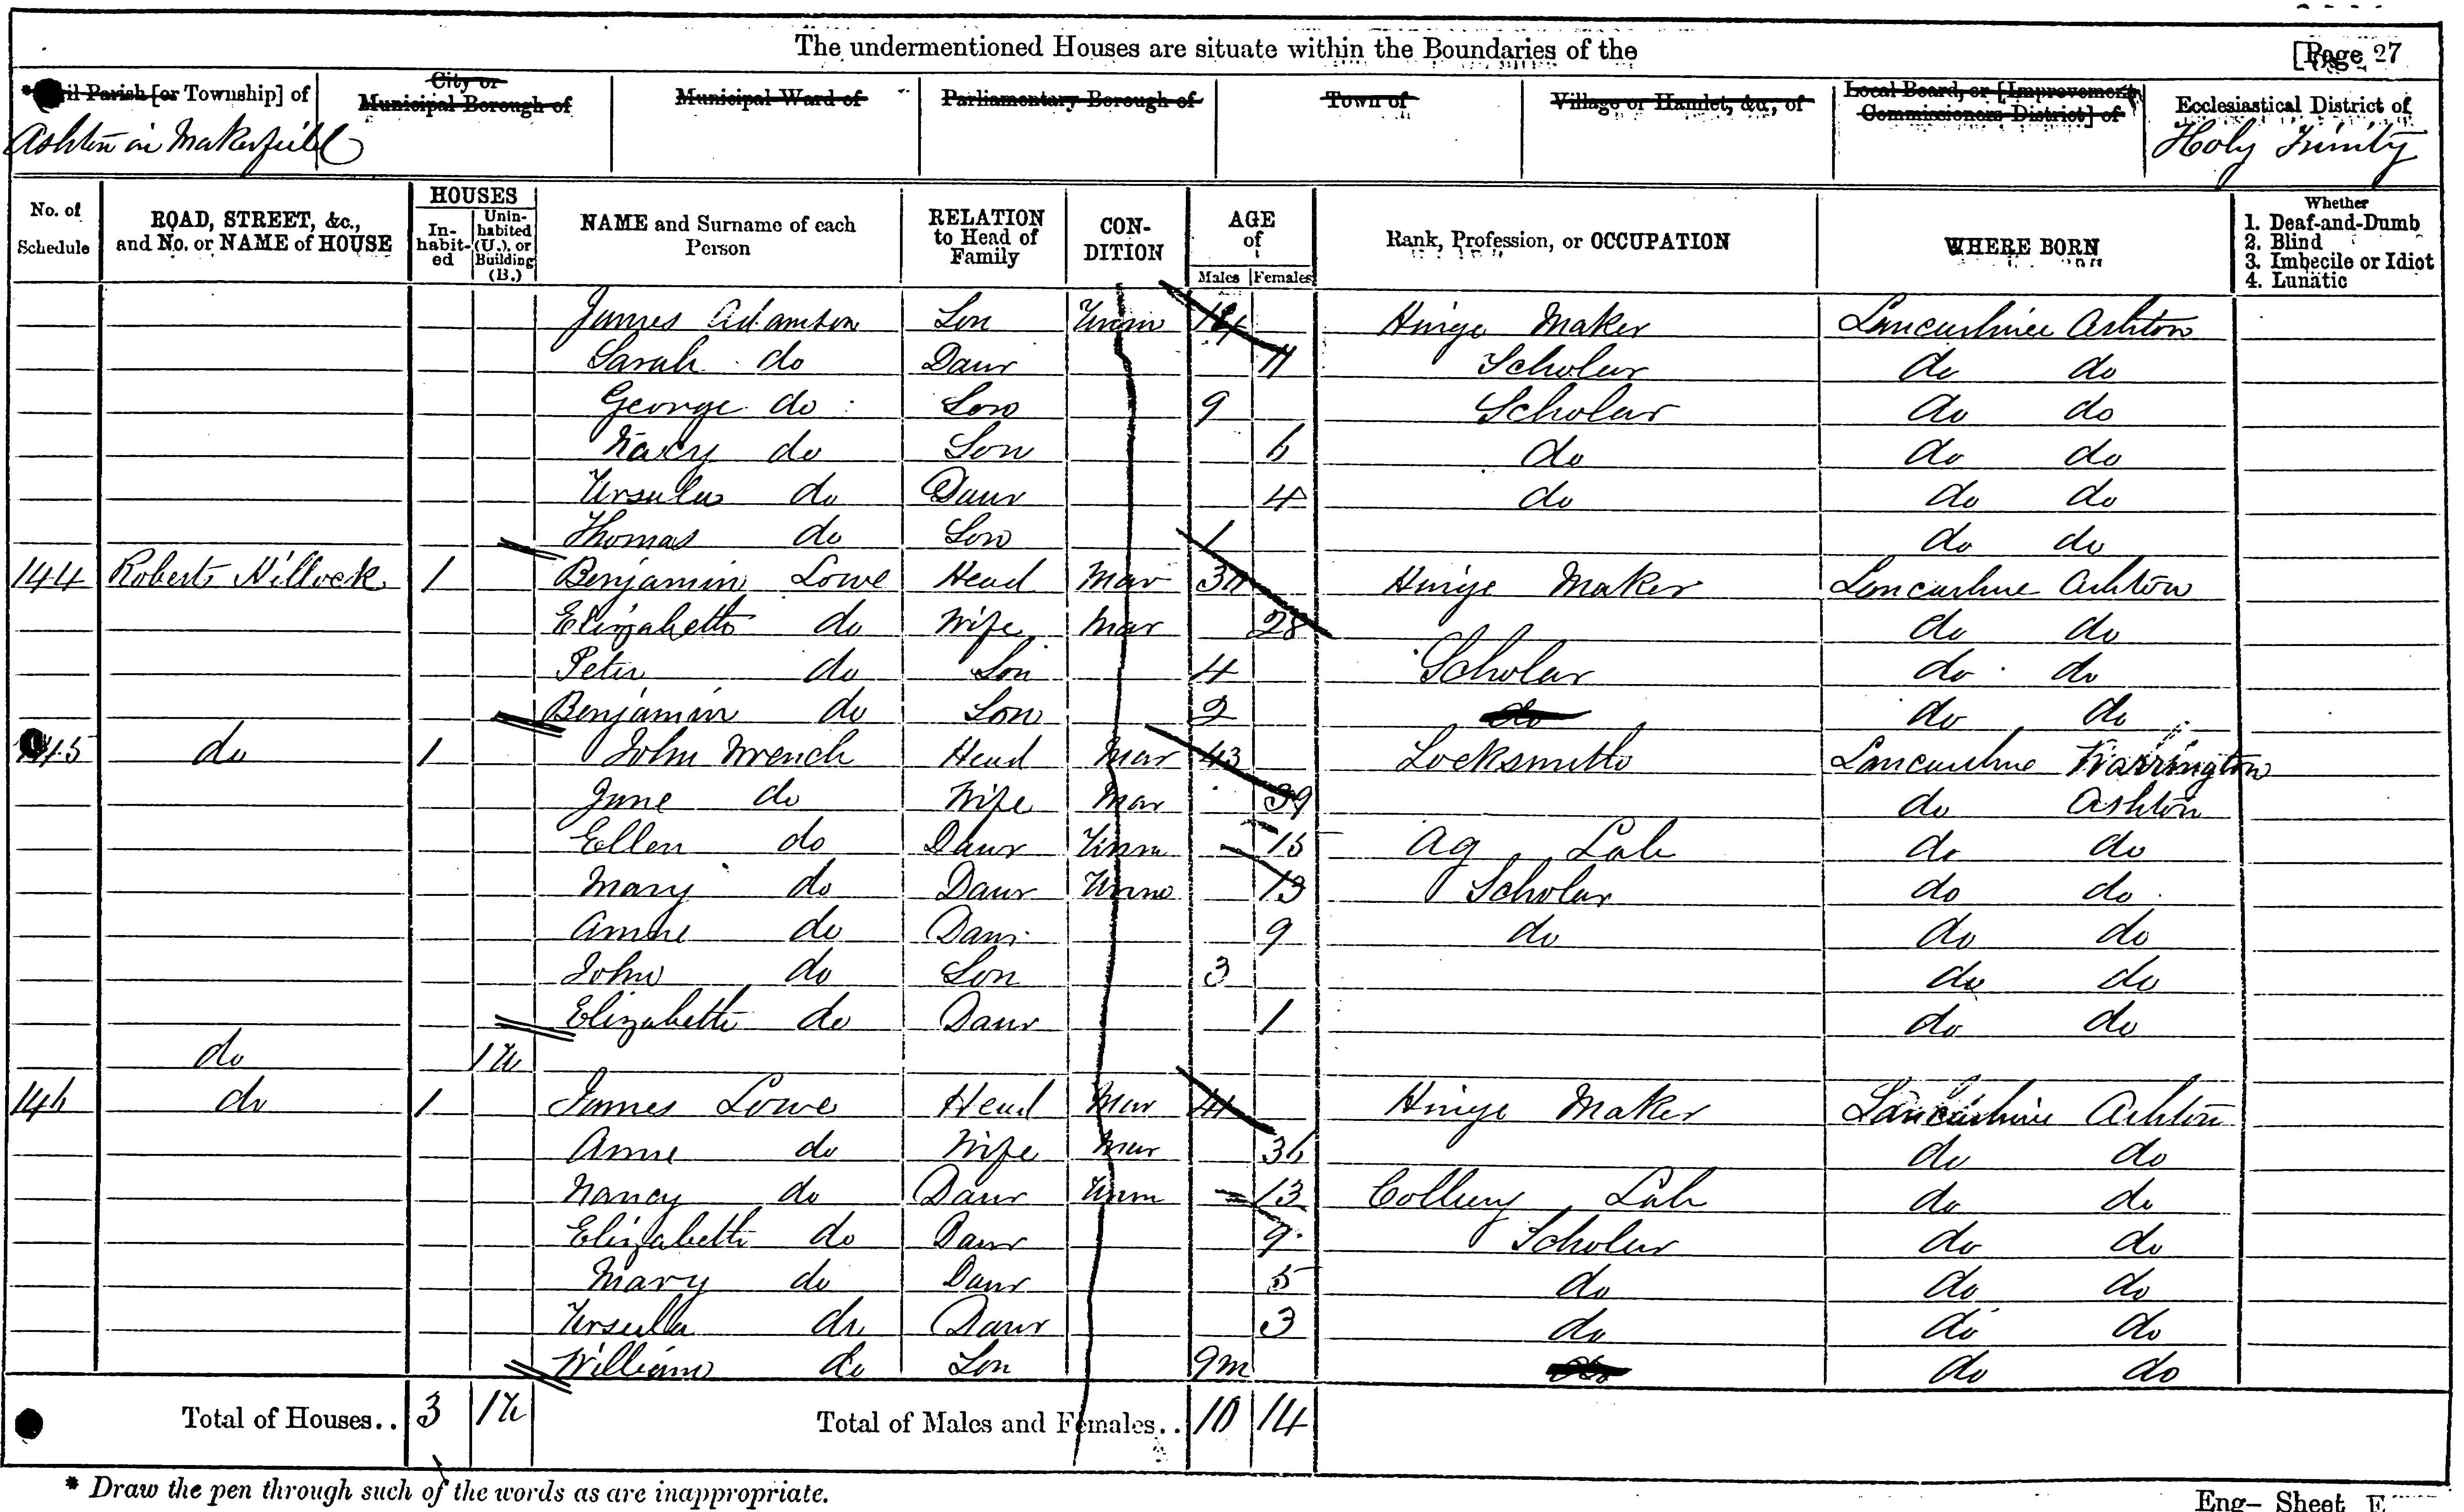 The undermentioned Houses are situate within the Boundaries of the
[Page 27
Parish [or Township] of
City or Municipal Borough of
Municipal Ward of
Parliamentary Borough of
Town of
Village or Hamlet, &c., of
Local Board, or [Improvement Commissioners District] of
Ecclesiastical District of
Ashton in Makerfield
Holy Trinity
No. of Schedule
ROAD, STREET, &c., and No. or NAME of HOUSE
HOUSES
In-habit-ed
Unin-habited (U.), or Building (B.)
NAME and Surname of each Person
RELATION to Head of Family
CON-DITION
AGE of
Males Females
Rank, Profession, or OCCUPATION
WHERE BORN
Whether
1. Deaf-and-Dumb
2. Blind
3. Imbecile or Idiot
4. Lunatic
James Adamson Son Unm Hinge Maker Lancashire Ashton
Sarah do Daur 11 Scholar do do
George do Son 9 Scholar do do
Nancy do Son 6 do do do
Ursula do Daur 4 do do do
Thomas do Son 1 do do
144 Roberts Hillock 1 Benjamin Lowe Head Mar Hinge Maker Lancashire Ashton
Elizabeth do Wife Mar 28 do do
Peter do Son 4 Scholar do do
Benjamin do Son 2 do do do
145 do 1 John Wrench Head Mar 43 Locksmith Lancashire Warrington
Jane do Wife Mar 39 do Ashton
Ellen do Daur Unm 15 Ag Lab do do
Mary do Daur Unm 13 Scholar do do
Anne do Daur 9 do do do
John do Son 3 do do
Elizabeth do Daur 1 do do
do 1U
146 do 1 James Lowe Head Mar 41 Hinge Maker Lancashire Ashton
Anne do Wife Mar 36 do do
Nancy do Daur Unm 13 Colliery Lab do do
Elizabeth do Daur 9 Scholar do do
Mary do Daur 5 do do do
Ursula do Daur 3 do do do
William do Son 9m do do do
Total of Houses.. 3 1U Total of Males and Females.. 10 14
* Draw the pen through such of the words as are inappropriate.
Eng- Sheet E